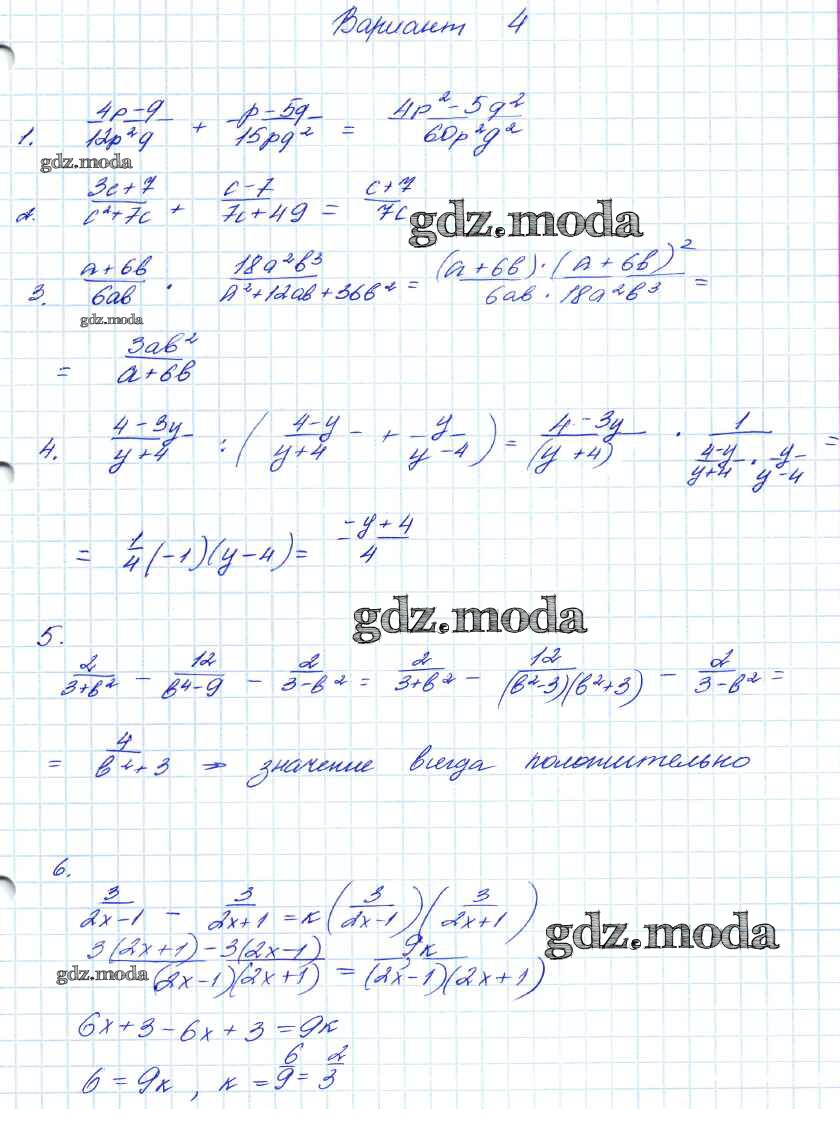 Вариант 4
1. (4p-q)/(12p²q) + (p-5q)/(15pq²) = (4p²-5q²)/(60p²q²)
gdz.moda
2. (3c+7)/(c²+7c) + (c-7)/(7c+49) = (c+7)/(7c)
gdz.moda
3. (a+6b)/(6ab) · (18a²b³)/(a²+12ab+36b²) = ((a+6b)·(a+6b)²)/(6ab·18a²b³) =
gdz.moda
= (3ab²)/(a+6b)
4. (4-3y)/(y+4) : ((4-y)/(y+4) + y/(y-4)) = (4-3y)/((y+4)) · 1/((4-y)/(y+4) · y/(y-4)) =
= 1/4 (-1)(y-4) = (-y+4)/4
gdz.moda
5.
2/(3+b²) - 12/(b⁴-9) - 2/(3-b²) = 2/(3+b²) - 12/((b²-3)(b²+3)) - 2/(3-b²) =
= 4/(b²+3) ⇒ значение всегда положительно
6.
3/(2x-1) - 3/(2x+1) = к (3/(2x-1)) (3/(2x+1))
gdz.moda
(3(2x+1)-3(2x-1))/((2x-1)(2x+1)) = 9к/((2x-1)(2x+1))
gdz.moda
6x+3-6x+3=9к
6=9к, к = 6/9 = 2/3